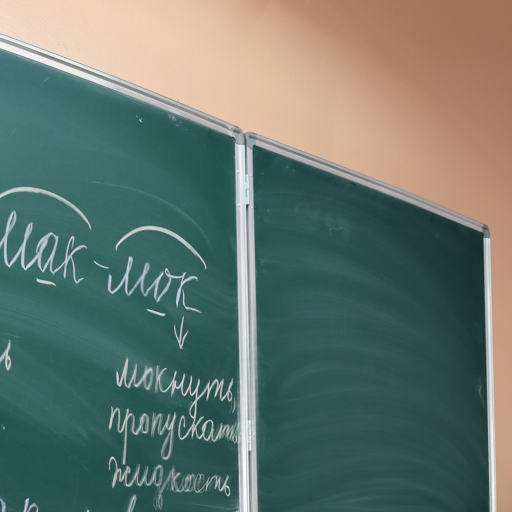 мак-мок
мокнуть,
пропускать
жидкость